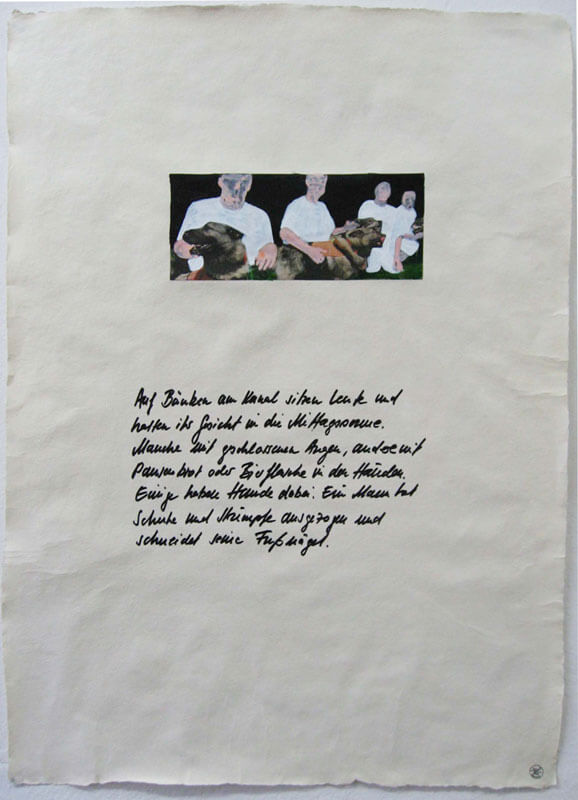 Auf Bänken am Kanal sitzen Leute und
halten ihr Gesicht in die Mittagssonne.
Manche mit geschlossenen Augen, andere mit
Pausenbrot oder Bierflasche in den Händen.
Einige haben Hunde dabei. Ein Mann hat
Schuhe und Strümpfe ausgezogen und
schneidet seine Fußnägel.